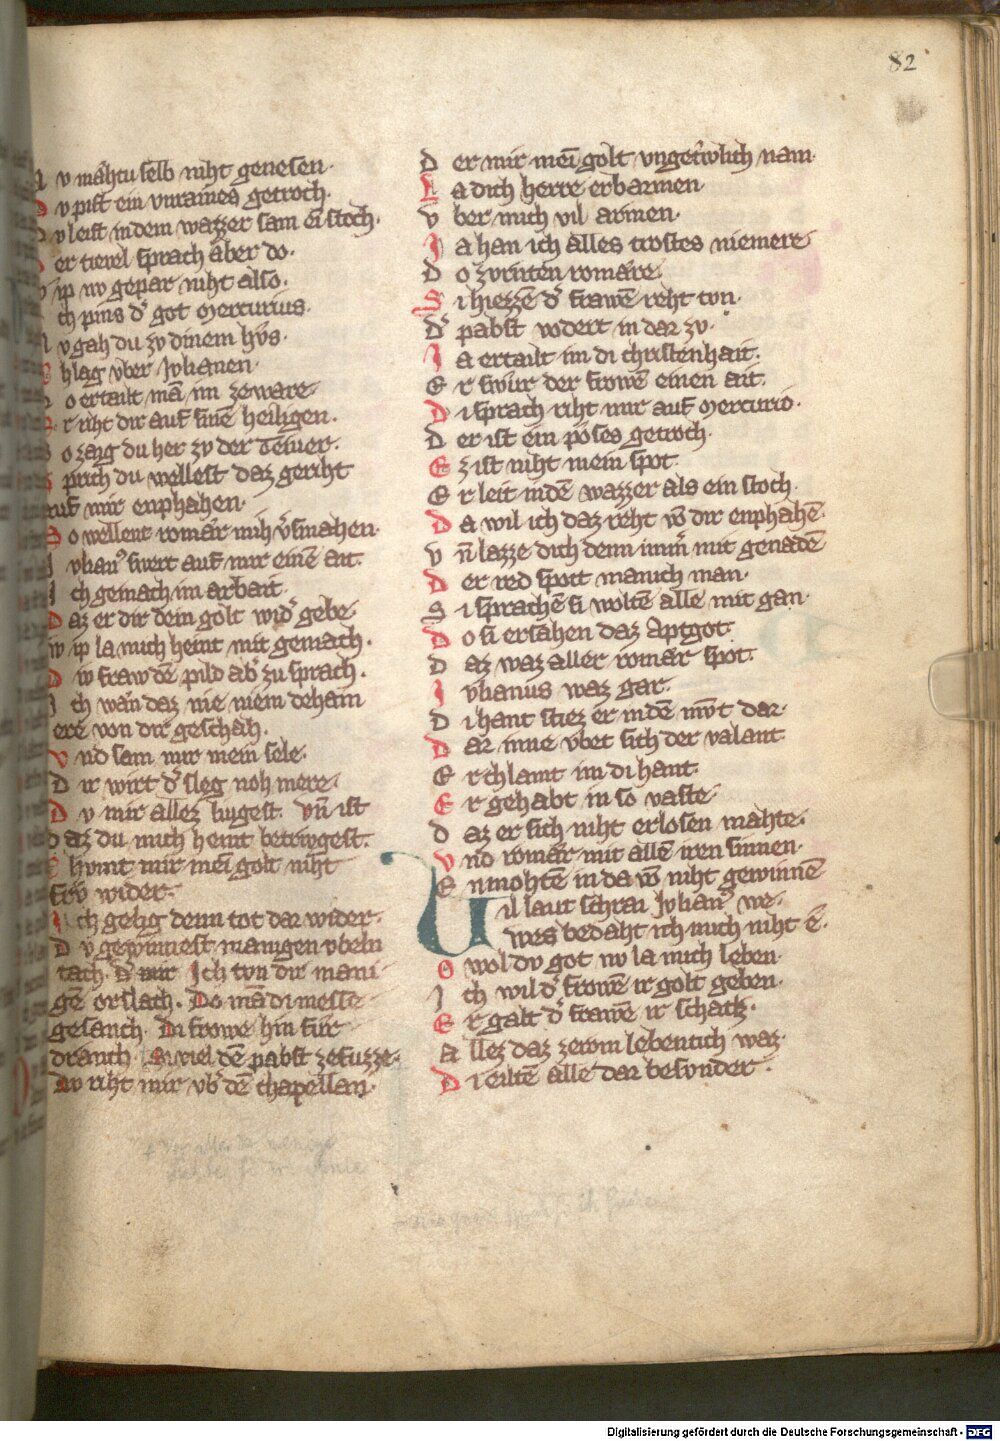 82
N v mahtu selb niht genesen.
D v pist ein vnraines getroch.
D v leist in dem wazzer sam ei stoch.
D er tievel sprach aber do.
w ip nv gepar niht also.
I ch pins d' got Mercurius.
N v gah du zv dinem hvs.
C hlag vber Jvlianen.
S o ertailt mā im zeware.
E r riht dir auf sinē heiligen.
S o zaig du her zv der Teiuer.
S prich du wellest daz geriht
auf mir enphahen.
S o wellent romār mih v'smahen.
I vlian' swert auf mir einē ait.
I ch gemach im arbait.
D az er dir dein golt wid' gebe.
w ip la mich heint mit gemach.
D iv fraw dē pild ab' zu sprach.
I ch wān daz nie niem dehain
ere von dir geschah.
V nd sam mir mein sele.
D ir wirt d' sleg noh mere.
D v mir allez livgest. Vn̄ ist
daz du mich heint betrivgest.
C hvmt mir mei golt niht
frv wider.
I ch gelig denn tot dar wider.
D v gewinnest manigen vbeln
tach. D' mir Ich tvn dir mani-
gē orslach. Do mā di messe
gesanch. Di frowe hin fur
dranch. Si viel dē pabst zefuzze.
Nv riht mir vb' dē chapellan.
D er mir mei golt vngetrwlich nam.
L a dich herre erbarmen
V ber mich vil armen.
I a han ich alles trostes niemere
D o zvrnten romāre.
S i hiezzē d' frawē reht tvn.
D' pabst vodert in dar zv.
I a ertailt im di christenhait.
E r swur der frowē einen ait.
D i sprach riht mir auf Mercurio.
D er ist ein poses getroch.
E z ist niht mein spot.
E r leit in dē wazzer als ein stoch.
D a wil ich daz reht vō dir enphahē.
V n̄ lazze dich denn imm' mit genadē
D er red spott manich man.
S i sprachē si woltē alle mit gan.
D o si ersahen daz Aptgot.
D az waz aller romār spot.
I vlianus waz gar.
D i hant stiez er in dē mvt dar.
D ar inne vbet sich der valant.
E r chlamt im di hant.
E r gehabt in so vaste.
D az er sich niht erlosen mahte.
V nd romār mit allē iren sinnen.
E nmohtē in da vō niht gewinnē
Vil laut schrai Jvlian' we.
wes bedaht ich mich niht ē.
O wol dv got nv la mich leben.
I ch wil d' frowē ir golt geben.
E r galt d' frawē ir schatz.
A llez daz ze rom lebentich waz.
D i eiltē alle dar besvnder.
Digitalisierung gefördert durch die Deutsche Forschungsgemeinschaft - DFG